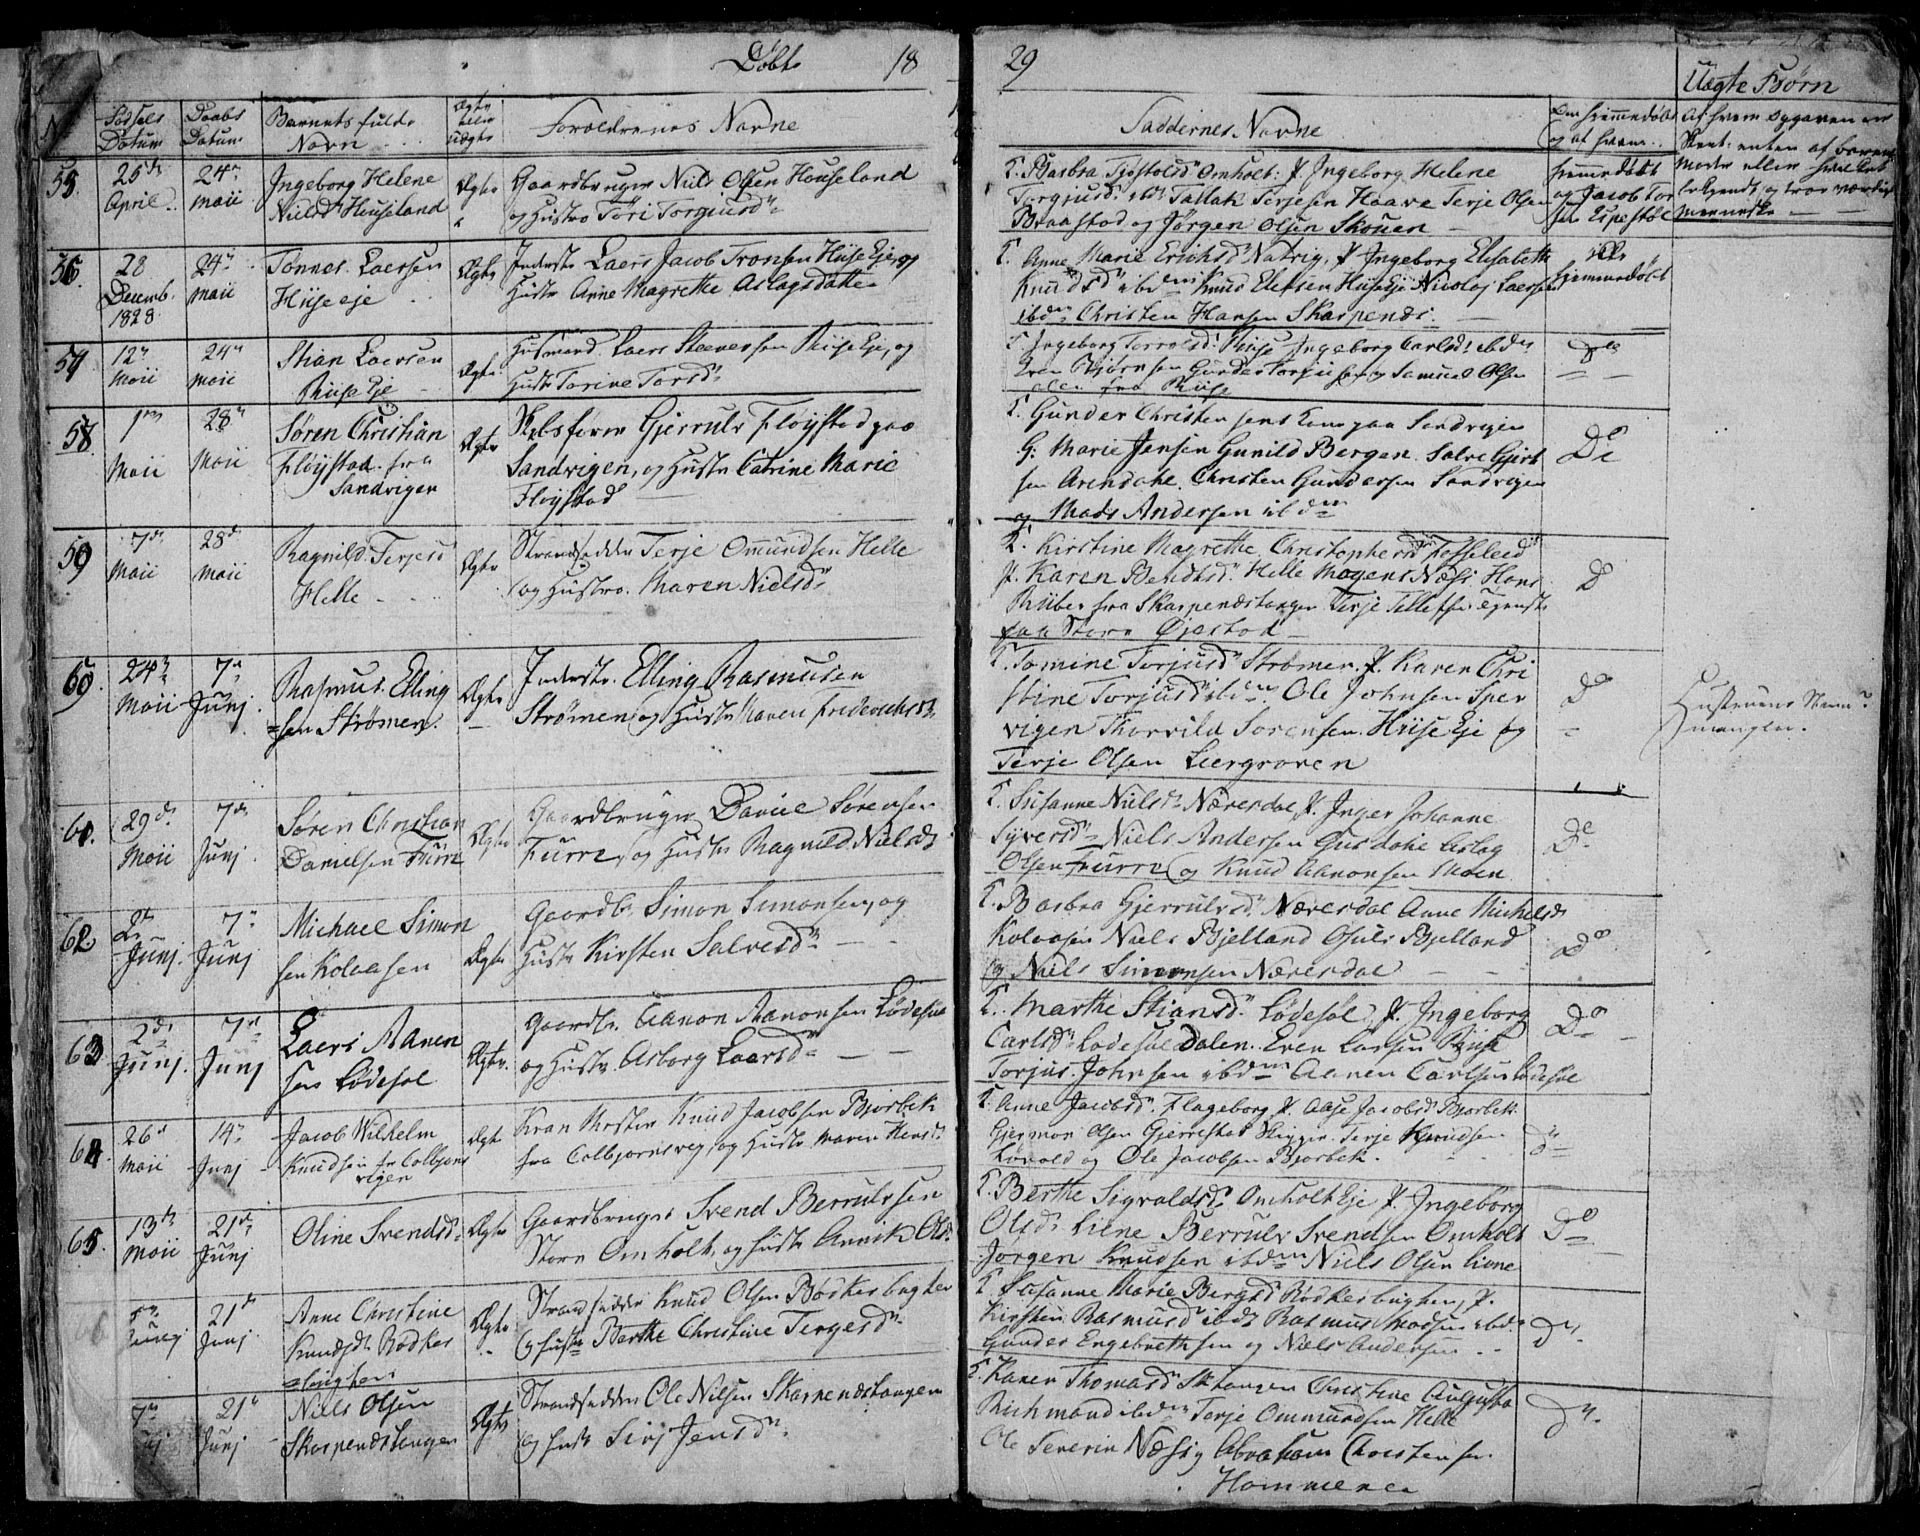 Døbte 18
29
Uægte Børn
Fødsels Datum
Daabs Datum
Barnets fulde Navn
Ægte eller Uægte
Foreldrenes Navne
Faddernes Navne
Om hiemmedøbt og af hvem
Af hvem Opgaven er
skeet: enten af barnets
Moder eller
og troværdig
Menneske
55. 25de April 24de Maii
Ingeborg Helene
Nielsdr Houseland
Ægte
Gaardbruger Niels Olsen Houseland
og Hustro Tøri Torgiusdr
T. Barbra Tjøstolsdr Omholt: P. Ingeborg Helene
Torgjusdr ibdn Tallak Terjesen Haave Terje Olsen
Braastad og Jørgen Olsen Skouen
hiemmedøbt
og Jacob Tor
sen Espestøl
56. 28 Decemb. 1828 24de Maii
Tønnes Laersen
Hiise eje
Ægte
Inderste Laers Jacob Tronsen Hiise Eje, og
Hustr Anne Magrethe Aslagsdatter
T. Anne Marie Erichsdr Natvig, P. Ingeborg Elisabeth
Knudsdr ibdm Knud Elefsen Hiise Eje Nicolaj Laersen
ibdm Christen Hansen Skarpenæs.
hiemmedøbt
57 12te Maii 24de Maii
Stian Laersen
Riise Eje
Ægte.
Husmand Laers Steenersen Riise Eje, og
Hustr Torine Torsdr
T. Ingeborg Torvolsdr Hiise Ingeborg Carlsdr ibdm
Even Bjørnsen Gunder Torjusen og Samuel Olsen
alen fra Riise
58. 1ste Maii 28de Maii
Søren Christian
Fløystad fra
Sandvigen
Ægte
Gjerrulv Fløystad paa
Sandvigen, og Hustr Catrine Marie
Fløystad
T. Gunder Christensens Kone paa Sandvigen
G: Marie Jensen Gunild Bergen. Salve Gjert
sen Arendahl. Christen Gundersen Sandvigen
og Mads Andersen ibdm
De
59 7de Maii 28de Maii
Ragnild Terjesd
Helle
Ægte
Strandsidder Terje Omundsen Helle
og Hustro. Maren Nielsdr
T. Kirstine Magrethe Christophersdr
P. Karen Bendtsdr Helle Mogens Næss Hans
Riiber fra Skarpenæstangen Terje Tellefsen
paa Store Øjestad
D
60. 24de Maii 7de Junj.
Rasmus Elling
sen Strømen.
Ægte
Inderste. Elling Rasmusen
Strømen og Hustr Maren Frederichsdr
T. Tomine Torjusdr Strømen. P. Karen Chri
stine Torjusdr ibdm Ole Johnsen Sper
vigen Thorvild Sørensen. Hiise Eje og
Terje Olsen Leergraven
Do
Hustruens Navn
mangler.
61. 29de Maii 7de Junj.
Søren Christian
Danielsen Furre
Ægte
Gaardbruger Daniel Sørensen
Furre, og Hustr Ragnild Nielsdr
T. Susanne Nielsdr Næresdal, P. Inger Johanne
Syversdr Niels Andersen Gusdahl Aslag
Olsen Furre og Knud Aanonsen Moen
De
62 2de Junj. 7de Junj
Michael Simon
sen Kolaasen
Ægte
Gaardbr. Simon Simonsen, og
Hustr Kirsten Salvesdr
T. Barbra Gjerrulvsdr Næresdal Anne Michelsdr
Kolaasen Niels Bjelland Osuls Bjelland
og Niels Simonsen Næresdal
Do
63 2de Junj. 7de Junj
Laers Aanen
sen Lødesøl
Ægte.
Gaardbr. Aanon Aanonsen Lødesøl
og Hustr. Asborg Laersdr
T. Marthe Stiansdr Lødesøl, P. Ingeborg
Carlsdr Lødesøl Dalen. Even Larsen Riise
Torjus. Johnsen ibdm Aanen Carlsen Lødesøl
Do
64 26de Maii 14de Junj
Jacob Wilhelm
Knudsen fr Colbjøns
vigen
Ægte
Knud Jacobsen Bjorbek
fra Colbjørnsvig, og Hustr Maren
T. Anne Jacobsdr. Flageborg P. Aase Jacobsdr Bjorbek
Gjermon Olsen Gjerrestad Terje Knudsen
Løvold og Ole Jacobsen Bjorbek.
65. 13de Maii 21de Junj
Oline Svendsdr
Ægte
Gaardbruger Svend Berrulvsen
Store Omholt, og Hustr Annik Olsdr
T. Berthe Sigvaldsdr Omholt Eje P. Ingeborg
Olsdr Liene Berrulv Svendsen Omholt
Jørgen Knudsen ibdm Niels Olsen Liene
Do
21de Junj
Anne Christine
Knudsdr Bødker
bugten
Ægte
Strandsidder Knud Olsen Bødkerbugten
og Hustr Berthe Christine Tergesdr
T. Susanne Marie Bergsdr Bødkerbugten, P.
Kirsten Rasmusdr ibdr Rasmus Madsen ibd.
Gunder Engebrethsen og Niels Andersen
7de 21de Junj
Niels Olsen
Skarpenæstangen
Ægte
Strandsidder Ole Nielsen Skarpenæstangen
og Hustr Sirj Jensdr
T. Karen Thomasdr Sktangen Christine Augusta
Richmand ibdm Terje Ommundsen Helle
Ole Severin Næss og Abraham Christensen
Hammeren